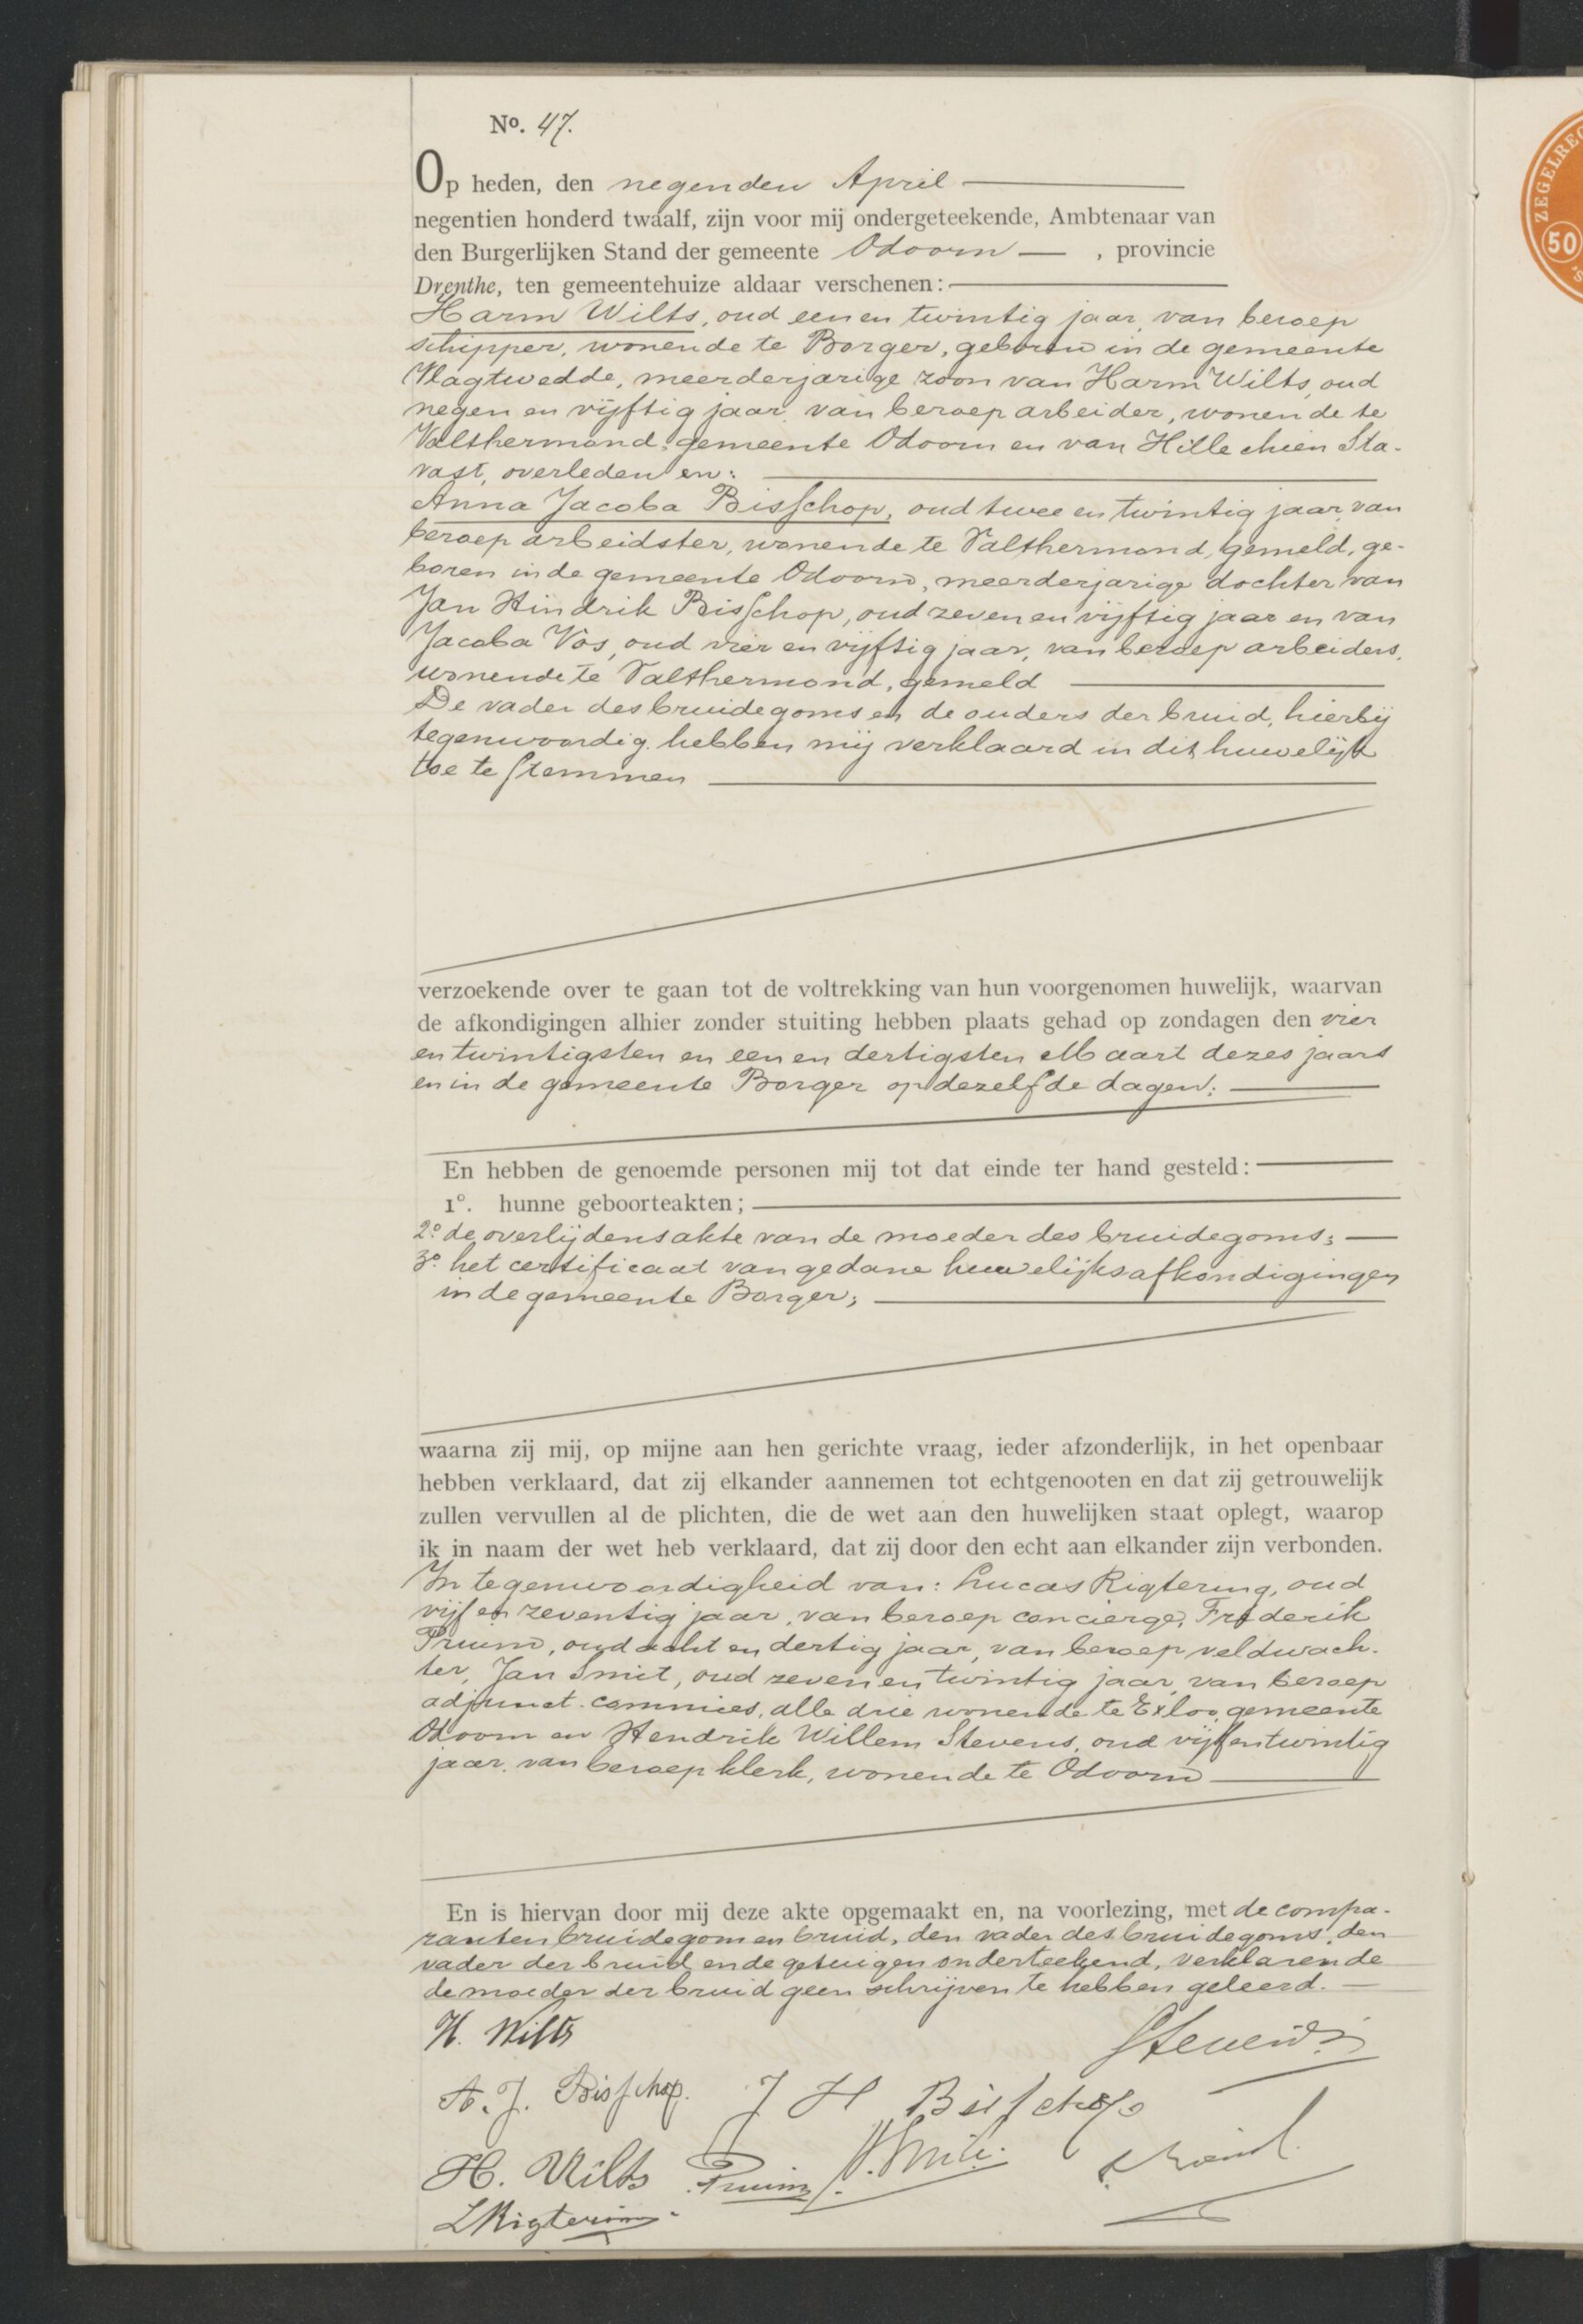 No. 47.
Op heden, den negenden April
negentien honderd twaalf, zijn voor mij ondergeteekende, Ambtenaar van
den Burgerlijken Stand der gemeente Odoorn, provincie
Drenthe, ten gemeentehuize aldaar verschenen:
Harm Wilts, oud een en twintig jaar, van beroep
schipper, wonende te Borger, geboren in de gemeente
Vlagtwedde, meerderjarige zoon van Harm Wilts, oud
negen en vijftig jaar, van beroep arbeider, wonende te
Valthermond, gemeente Odoorn en van Hillechien Sta-
vast, overleden en:
Anna Jacoba Bisschop, oud twee en twintig jaar, van
beroep arbeidster, wonende te Valthermond, gemeld, ge-
boren in de gemeente Odoorn, meerderjarige dochter van
Jan Hindrik Bisschop, oud zeven en vijftig jaar en van
Jacoba Vos, oud vier en vijftig jaar, van beroep arbeiders,
wonende te Valthermond, gemeld
De vader des bruidegoms en de ouders der bruid, hierbij
tegenwoordig hebben mij verklaard in dit huwelijk
toe te stemmen
verzoekende over te gaan tot de voltrekking van hun voorgenomen huwelijk, waarvan
de afkondigingen alhier zonder stuiting hebben plaats gehad op zondagen den vier
en twintigsten en een en dertigsten Maart dezes jaars
en in de gemeente Borger op dezelfde dagen;
En hebben de genoemde personen mij tot dat einde ter hand gesteld:
1°. hunne geboorteakten;
2° de overlijdensakte van de moeder des bruidegoms;
3° het certificaat van gedane huwelijksafkondigingen
in de gemeente Borger;
waarna zij mij, op mijne aan hen gerichte vraag, ieder afzonderlijk, in het openbaar
hebben verklaard, dat zij elkander aannemen tot echtgenooten en dat zij getrouwelijk
zullen vervullen al de plichten, die de wet aan den huwelijken staat oplegt, waarop
ik in naam der wet heb verklaard, dat zij door den echt aan elkander zijn verbonden.
In tegenwoordigheid van: Lucas Rigtering, oud
vijf en zeventig jaar, van beroep concierge, Frederik
Pruim, oud acht en dertig jaar, van beroep veldwach-
ter, Jan Smit, oud zeven en twintig jaar, van beroep
adjunct-commies, alle drie wonende te Exloo, gemeente
Odoorn en Hendrik Willem Stevens, oud vijf en twintig
jaar, van beroep klerk, wonende te Odoorn
En is hiervan door mij deze akte opgemaakt en, na voorlezing, met de compa-
ranten bruidegom en bruid, den vader des bruidegoms, den
vader der bruid en de getuigen onderteekend, verklarende
de moeder der bruid geen schrijven te hebben geleerd.
H. Wilts
Stevens
A. J. Bisschop.
J H Bisschop
H. Wilts
Pruim
J. Smit.
L Rigtering
ZEGELREC
50